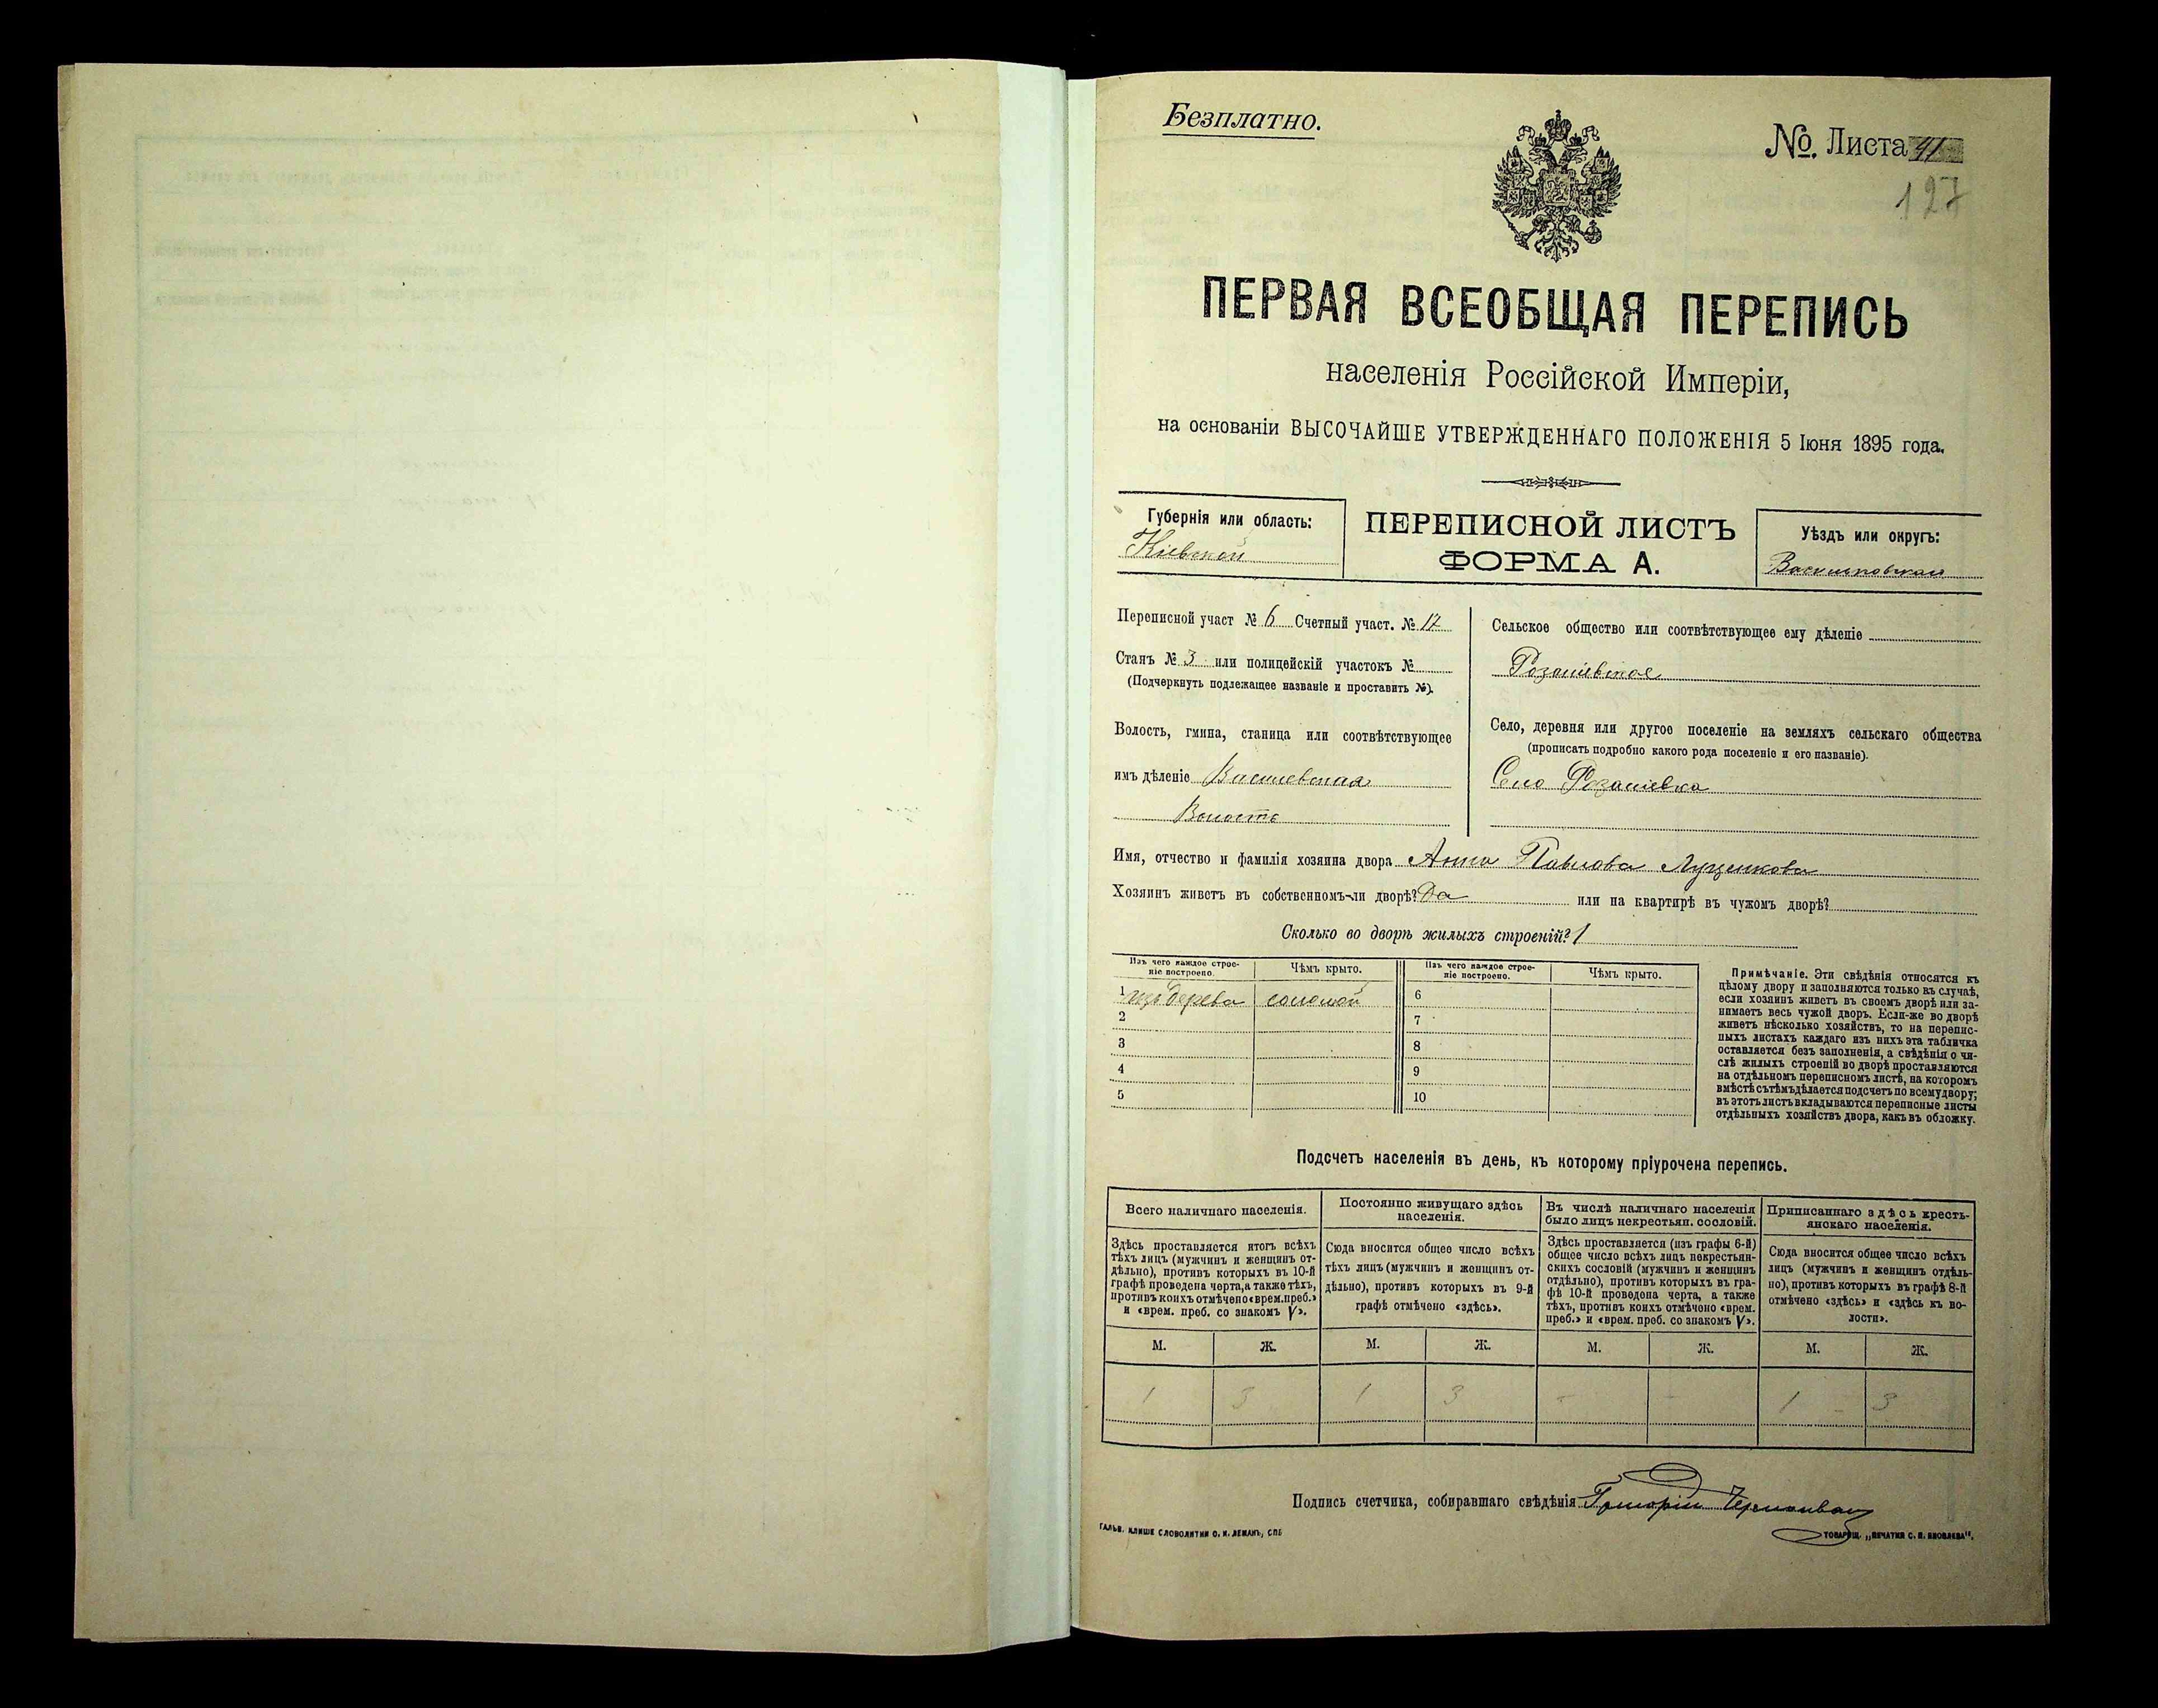 Безплатно.
№. Листа 41
127
ПЕРВАЯ ВСЕОБЩАЯ ПЕРЕПИСЬ
населенія Россійской Имперіи,
на основаніи ВЫСОЧАЙШЕ УТВЕРЖДЕННАГО ПОЛОЖЕНІЯ 5 Іюня 1895 года.
Губернія или область:
Кіевской
ПЕРЕПИСНОЙ ЛИСТЪ
ФОРМА А.
Уѣздъ или округъ:
Переписной участ № 6 Счетный участ. № 17
Станъ № 3 или полицейскій участокъ №
(Подчеркнуть подлежащее названіе и проставить №).
Волость, гмина, станица или соотвѣтствующее
имъ дѣленіе
Волость
Сельское общество или соотвѣтствующее ему дѣленіе
Село, деревня или другое поселеніе на земляхъ сельскаго общества
(прописать подробно какого рода поселеніе и его названіе).
Село
Имя, отчество и фамилія хозяина двора Анна Павлова Луценкова
Хозяинъ живетъ въ собственномъ-ли дворѣ? Да или на квартирѣ въ чужомъ дворѣ?
Сколько во дворѣ жилыхъ строеній? 1
Изъ чего каждое строе-
ніе построено.
Чѣмъ крыто.
Изъ чего каждое строе-
ніе построено.
Чѣмъ крыто.
1 изъ дерева соломой 6
2 7
3 8
4 9
5 10
Примѣчаніе. Эти свѣдѣнія относятся къ
цѣлому двору и заполняются только въ случаѣ,
если хозяинъ живетъ въ своемъ дворѣ или за-
нимаетъ весь чужой дворъ. Если-же во дворѣ
живетъ нѣсколько хозяйствъ, то на перепис-
ныхъ листахъ каждаго изъ нихъ эта табличка
оставляется безъ заполненія, а свѣдѣнія о чи-
слѣ жилыхъ строеній во дворѣ проставляются
на отдѣльномъ переписномъ листѣ, на которомъ
вмѣстѣ съ тѣмъ дѣлается подсчетъ по всему двору;
въ этотъ листъ вкладываются переписные листы
отдѣльныхъ хозяйствъ двора, какъ въ обложку.
Подсчетъ населенія въ день, къ которому пріурочена перепись.
Всего наличнаго населенія.
Здѣсь проставляется итогъ всѣхъ
тѣхъ лицъ (мужчинъ и женщинъ от-
дѣльно), противъ которыхъ въ 10-й
графѣ проведена черта, а также тѣхъ,
противъ коихъ отмѣчено «врем. преб.»
и «врем. преб. со знакомъ V».
Постоянно живущаго здѣсь
населенія.
Сюда вносится общее число всѣхъ
тѣхъ лицъ (мужчинъ и женщинъ от-
дѣльно), противъ которыхъ въ 9-й
графѣ отмѣчено «здѣсь».
Въ числѣ наличнаго населенія
было лицъ некрестьян. сословій.
Здѣсь проставляется (изъ графы 6-й)
общее число всѣхъ лицъ некрестьян-
скихъ сословій (мужчинъ и женщинъ
отдѣльно), противъ которыхъ въ гра-
фѣ 10-й проведена черта, а также
тѣхъ, противъ коихъ отмѣчено «врем.
преб.» и «врем. преб. со знакомъ V».
Приписаннаго здѣсь кресть-
янскаго населенія.
Сюда вносится общее число всѣхъ
лицъ (мужчинъ и женщинъ отдѣль-
но), противъ которыхъ въ графѣ 8-й
отмѣчено «здѣсь» и «здѣсь къ во-
лости».
М. Ж. М. Ж. М. Ж. М. Ж.
1 3 1 3 - - 1 3
Подпись счетчика, собиравшаго свѣдѣнія Григорій
ГАЛЬВ. КЛИШЕ СЛОВОЛИТНИ О. И. ЛЕМАНЪ, СПБ
ТОВАРИЩ. „ПЕЧАТНЯ С. П. ЯКОВЛЕВА".